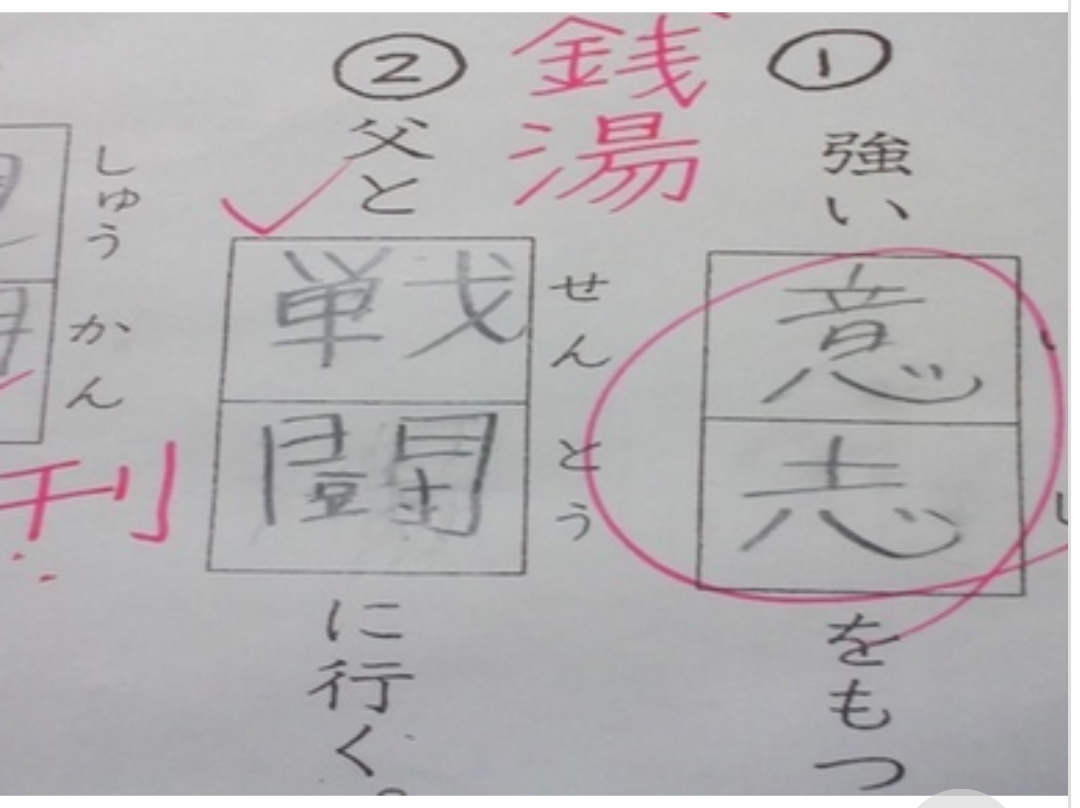 ①
強い意志をもつ
い
し
②
銭湯
父と戦闘に行く。
せんとう
しゅうかん
刊